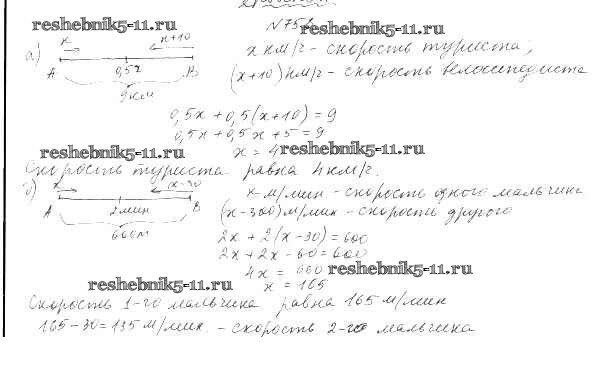 уравнений
reshebnik5-11.ru
№ 758
reshebnik5-11.ru
а) x x+10 x км/ч - скорость туриста;
A 0,5ч B (x+10) км/ч - скорость велосипедиста
9км
0,5x + 0,5(x+10) = 9
0,5x + 0,5x + 5 = 9
reshebnik5-11.ru x = 4 reshebnik5-11.ru
Скорость туриста равна 4 км/ч.
б) x (x-30) x м/мин - скорость одного мальчика
A 2мин B (x-300) м/мин - скорость другого
600м
2x + 2(x-30) = 600
2x + 2x - 60 = 600
4x = 660 reshebnik5-11.ru
reshebnik5-11.ru x = 165
Скорость 1-го мальчика равна 165 м/мин
165-30=135 м/мин. - скорость 2-го мальчика